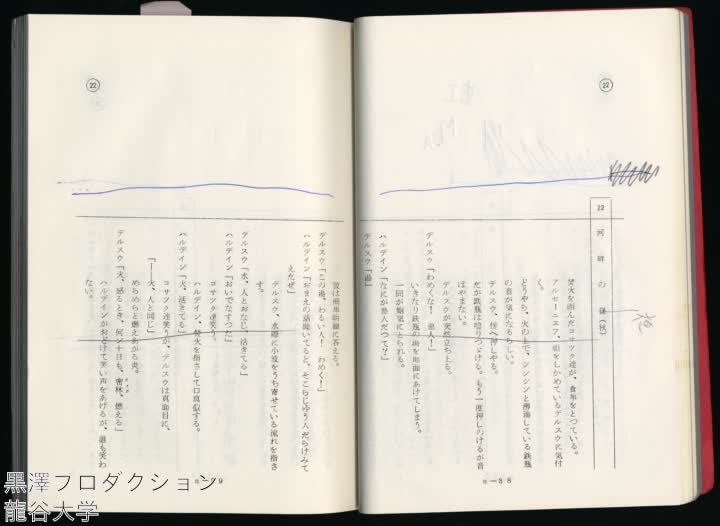 22
22 河畔の
夜
焚火を囲んだコサック達が、食事をとっている。
アルセーニエフ、頭をしかめているデルスウに気付
く。
どうやら、火の上で、シンシンと沸騰している鉄瓶
の音が気になるらしい。
デルスウ、傍へ押しやる。
だが鉄瓶は唸りつづける。もう一度押しのけるが音
はやまない。
デルスウが突然立ち上る。
デルスウ「わめくな! 悪人!」
いきなり鉄瓶の湯を地面にあけてしまう。
一同が呆気にとられる。
ハルデイン「なにが悪人だつて?」
デルスウ「湯」
-38
22
彼は簡単明瞭に答える。
デルスウ「この湯、わるい人! わめく!」
ハルデイン「おまえの話聞いてると、そこらじゆう人だらけみて
えだぜ」
デルスウ、水際に小波をうち寄せている流れを指さ
す。
デルスウ「水、人とおなじ、活きてる」
ハルデイン「おいでなすつた」
コサツク達笑う。
ハルデイン、焚火を指さして口真似する。
ハルデイン「火、活きてる」
コサツク達笑うが、デルスウは真面目に、
「――火、人と同じ」
めらめらと燃えあがる炎。
デルスウ「火、怒るとき、何ン十日も、密林、燃える」
ハルデインがおどけて笑い声をあげるが、誰も笑わ
ない。
黒澤プロダクション
龍谷大学